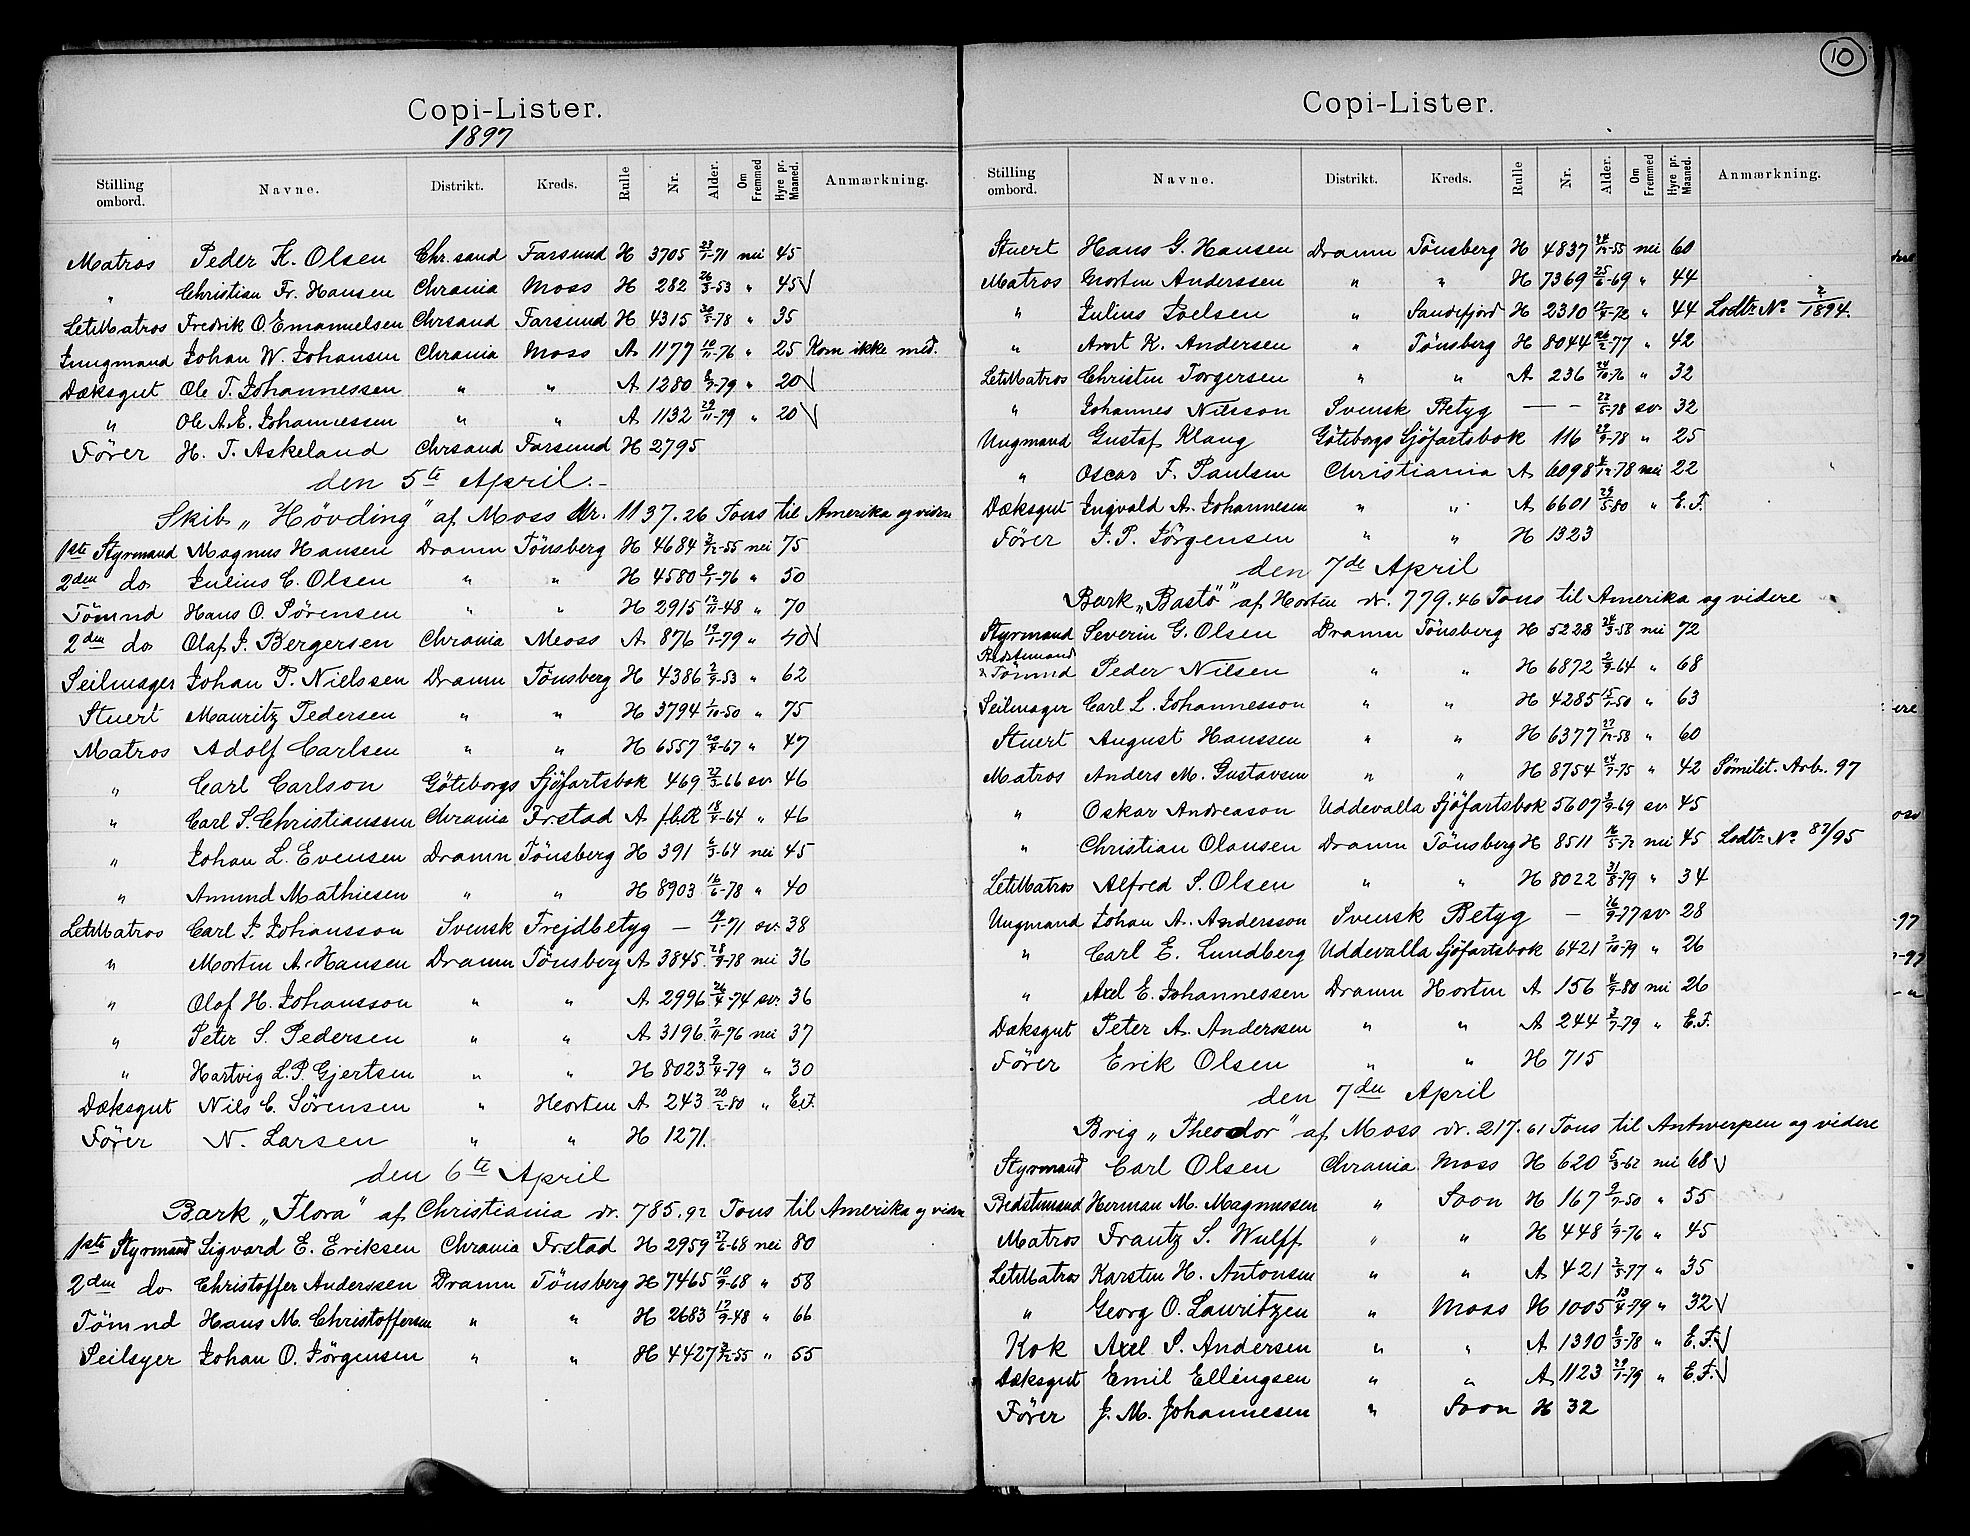 Copi-Lister.
1897
Stilling ombord. Navne. Distrikt. Kreds. Rulle Nr. Alder. Om Fremmed Hyre pr. Maaned. Anmærkning.
Matros Peder K. Olsen Chr.sand Farsund H 3705 23/1-71 nei 45
" Christian Fr. Hansen Chrania Moss H 282 26/3-53 " 45 √
LetMatros Fredrik O. Emanuelsen Chrsand Farsund H 4315 30/5-78 " 35
Jungmand Johan W. Johansen Chrania Moss A 1177 10/11-76 " 25 Kom ikke med.
Dæksgut Ole T. Johannessen " " A 1280 8/3-79 " 20 √
" Ole A.E. Johannessen " " A 1132 29/11-79 " 20 √
Fører H. T. Askeland Chrsand Farsund H 2795
den 5te April.-
Skib "Høvding" af Moss dr. 1137.26 Tons til Amerika og videre
1ste Styrmand Magnus Hansen Dramn Tönsberg H 4684 3/12-55 nei 75
2den do Julius C. Olsen " " H 4580 9/1-76 " 50
Tömnd Hans O. Sörensen " " H 2915 12/11-48 " 70
2den do Olaf J. Bergersen Chrania Moss A 876 19/1-79 " 40 √
Seilmager Johan P. Nielssen Dramn Tönsberg H 4386 2/9-53 " 62
Stuert Mauritz Pedersen " " H 3794 1/10-50 " 75
Matros Adolf Carlsen " " H 6557 20/4-67 " 47
" Carl Carlson Göteborgs Sjöfartsbok 469 22/3-66 sv 46
" Carl S. Christianssen Chrania Frstad A f.b.R 18/4-64 " 46
" Johan L. Evensen Dramn Tönsberg H 391 6/3-64 nei 45
" Amund Mathiesen " " H 8903 16/6-78 " 40
LetMatros Carl J. Johansson Svensk Frejdbetyg — 14/1-71 sv. 38
" Morten A. Hansen Dramn Tönsberg A 3845 28/9-78 nei 36
" Olof H. Johansson " " A 2996 26/4-74 sv. 36
" Peter S. Pedersen " " A 3196 7/11-76 nei 37
" Hartvig L.P. Gjertsen " " H 8023 9/4-79 " 30
Dæksgut Nils C. Sörensen " Horten A 243 20/2-80 " E.F.
Fører N. Larsen " " H 1271.
den 6te April
Bark "Flora" af Christiania dr. 785.92 Tons til Amerika og videre
1ste Styrmand Sigvard E. Eriksen Chrania Frstad H 2959 27/6-68 nei 80
2den do Christoffer Anderssen Dramn Tönsberg H 7465 10/9-68 " 58
Tömnd Hans M. Christoffersen " " H 2683 17/9-48 " 66
Seilsyer Johan O. Jörgensen " " H 4427 3/12-55 " 55
10
Copi-Lister.
Stilling ombord. Navne. Distrikt. Kreds. Rulle Nr. Alder. Om Fremmed Hyre pr. Maaned. Anmærkning.
Stuert Hans G. Hansen Dramn Tönsberg H 4837 24/12-55 nei 60
Matros Morten Anderssen " " H 7369 25/6-69 " 44
" Julius Joelsen " Sandefjord H 2310 12/9-72 " 44 Lodtr. No 2/1894.
" Arnt K. Andersen " Tönsberg H 8044 26/2-77 " 42
LetMatros Christen Torgersen " " A 236 24/10-76 " 32
" Johannes Nilsson Svensk Betyg — - 22/5-78 sv. 32
Ungmand Gustaf Klang Göteborgs Sjöfartsbok 116 29/9-78 " 25
" Oscar F. Paulsen Christiania A 6098 4/12-78 nei 22
Dæksgut Ingvald A. Johannesen " " A 6601 29/5-80 " E.F.
Fører J.P. Jörgensen " " H 1323
den 7de April
Bark "Bastö" af Horten dr. 779.46 Tons til Amerika og videre
Styrmand Severin G. Olsen Dramn Tönsberg H 5228 24/3-58 nei 72
Bedstemand & Tömnd Peder Nilsen " " H 6872 2/9-64 " 68
Seilmager Carl L. Johannesson " " H 4285 15/2-50 " 63
Stuert August Hanssen " " H 6377 27/12-58 " 60
Matros Anders M. Gustavsen " " H 8754 24/7-75 " 42 Sömilit. Arb. 97
" Oskar Andreason Uddevalla Sjöfartsbok 5607 3/9-69 sv 45
" Christian Olausen Dramn Tönsberg H 8511 16/5-72 nei 45 Lodtr No 87/95
LetMatros Alfred S. Olsen " " H 8022 31/8-79 " 34
Ungmand Johan A. Andersson Svensk Betyg — 26/9-77 sv. 28
" Carl E. Lundberg Uddevalla Sjöfartsbok 6421 3/10-79 " 26
" Axel E. Johannessen Dramn Horten A 156 6/9-80 nei 26
Dæksgut Peter A. Anderssen " " A 244 3/7-79 " E.F.
Fører Erik Olsen " " H 715
den 7den April
Brig "Theodor" af Moss dr. 217.61 Tons til Antwerpen og videre
Styrmand Carl Olsen Chrania Moss H 620 5/3-62 nei 68 √
Bedstmand Herman M. Magnussen " Soon H 167 9/7-50 " 55
Matros Frantz S. Wulff " " H 448 1/9-76 " 45
LetMatros Karsten H. Antonsen " " A 421 2/5-77 " 35
" Georg O. Lauritzen " Moss H 1005 13/4-79 " 32 √
Kok Axel S. Andersen " " A 1310 8/3-78 " E.F. √
Dæksgut Emil Ellingsen " " A 1123 29/1-79 " E.F. √
Fører J. M. Johannesen " Soon H 32